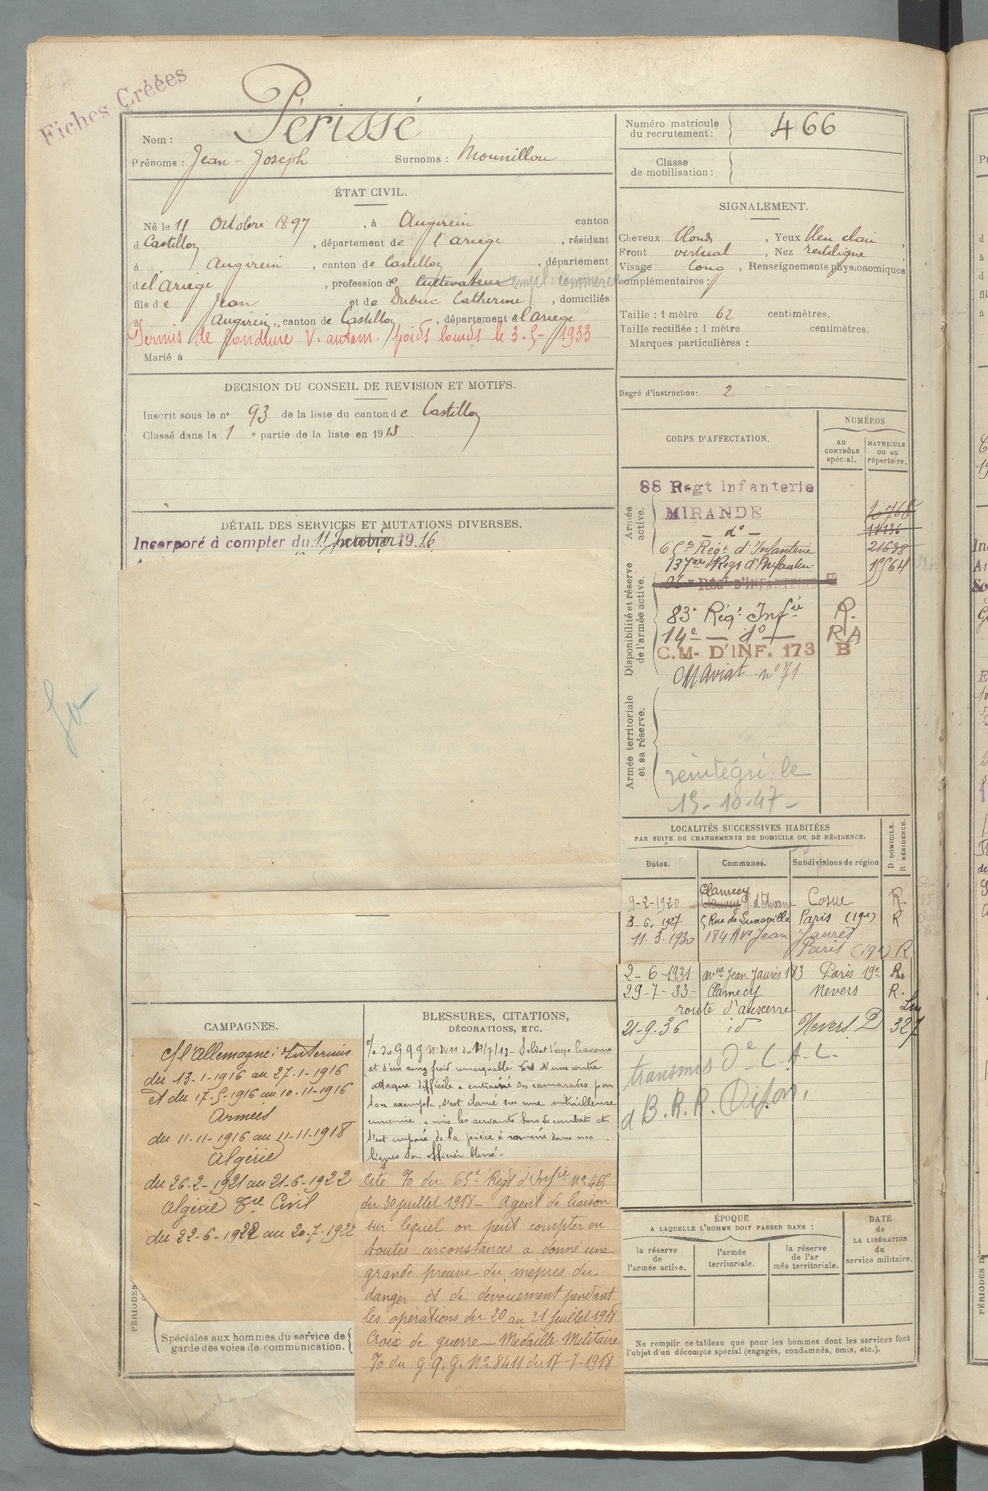 Fiches Créées
Nom : Périssé
Prénoms : Jean-Joseph Surnoms : Mounillou
ÉTAT CIVIL.
Né le 11 Octobre 1897, à Augirein canton
d Castillon, département de l'Ariège, résidant
à Augirein, canton de Castillon, département
de l'Ariège, profession de Cultivateur empl. commerce
fils de Jean et de Dubuc Catherine, domiciliés
à Augirein, canton de Castillon, département de l'Ariège
Permis de conduire V. autom. poids lourds le 3-5-1933
Marié à
DECISION DU CONSEIL DE REVISION ET MOTIFS.
Inscrit sous le n° 93 de la liste du canton de Castillon
Classé dans la 1 e partie de la liste en 1915
DÉTAIL DES SERVICES ET MUTATIONS DIVERSES.
Incorporé à compter du 11 1916
CAMPAGNES.
C/ l'Allemagne : Intérieur
du 13-1-1916 au 27-1-1916
et du 17-5-1916 au 10-11-1916
Armées
du 11-11-1916 au 11-11-1918
Algérie
du 26-2-1921 au 21-6-1922
Algérie Civil
du 22-6-1922 au 20-7-1922
PÉRIODES
Spéciales aux hommes du service de
garde des voies de communication.
BLESSURES, CITATIONS,
DÉCORATIONS, ETC.
et d'un sang froid remarquable
attaque difficile a entraîné ses camarades par
son exemple, s'est élancé sur une mitrailleuse
ennemie a mis les servants hors de combat et
s'est emparé de la pièce a ramené dans nos
lignes son officier blessé.
Cité % du 65e Régt d'Infie N° 465
du 30 juillet 1918 - Agent de liaison
sur lequel on peut compter en
toutes circonstances a donné une
grande preuve du mépris du
danger et de dévouement pendant
les opérations du 20 au 21 Juillet 1918
Croix de guerre - Médaille Militaire
% du G.Q.G. N° 8411 du 17-7-1918
Numéro matricule
du recrutement : 466
Classe
de mobilisation :
SIGNALEMENT.
Cheveux blonds, Yeux bleu clair,
Front vertical, Nez rectiligne,
Visage long, Renseignements physionomiques
complémentaires :
Taille : 1 mètre 62 centimètres.
Taille rectifiée : 1 mètre centimètres.
Marques particulières :
Degré d'instruction : 2
CORPS D'AFFECTATION.
NUMÉROS
AU CONTRÔLE spécial.
MATRICULE OU AU répertoire.
Armée active.
88 Regt Infanterie
MIRANDE
- do -
65e Régt d'Infanterie 21638
137e Régt d'Infanterie 1564
Disponibilité et réserve de l'armée active.
83e Régt Infie R.
14e - do - RA
C.M- D'INF. 173 B
n° 71
Armée territoriale et sa réserve.
réintégré le
15-10-47-
LOCALITÉS SUCCESSIVES HABITÉES
PAR SUITE DE CHANGEMENTS DE DOMICILE OU DE RÉSIDENCE.
Dates. Communes. Subdivisions de région D DOMICILE. R RÉSIDENCE.
Clamecy
9-2-1920 Cosne R
3-6-1927 5 Rue de Lunéville Paris (19e) R
11-3-1930 184 Ave Jean Jaurès
Paris (19e) R
2-6-1931 avue Jean Jaurès 183 Paris 19e R.
29-7-33- Clamecy Nevers R.
route d'auxerre
21-9-36 id Nevers D 327
transmis De C.A.L.
à B.R.R. Dijon,
ÉPOQUE
A LAQUELLE L'HOMME DOIT PASSER DANS :
DATE
de
LA LIBÉRATION
du
service militaire.
la réserve de l'armée active.
l'armée territoriale.
la réserve de l'armée territoriale.
Ne remplir ce tableau que pour les hommes dont les services font
l'objet d'un décompte spécial (engagés, condamnés, omis, etc.).